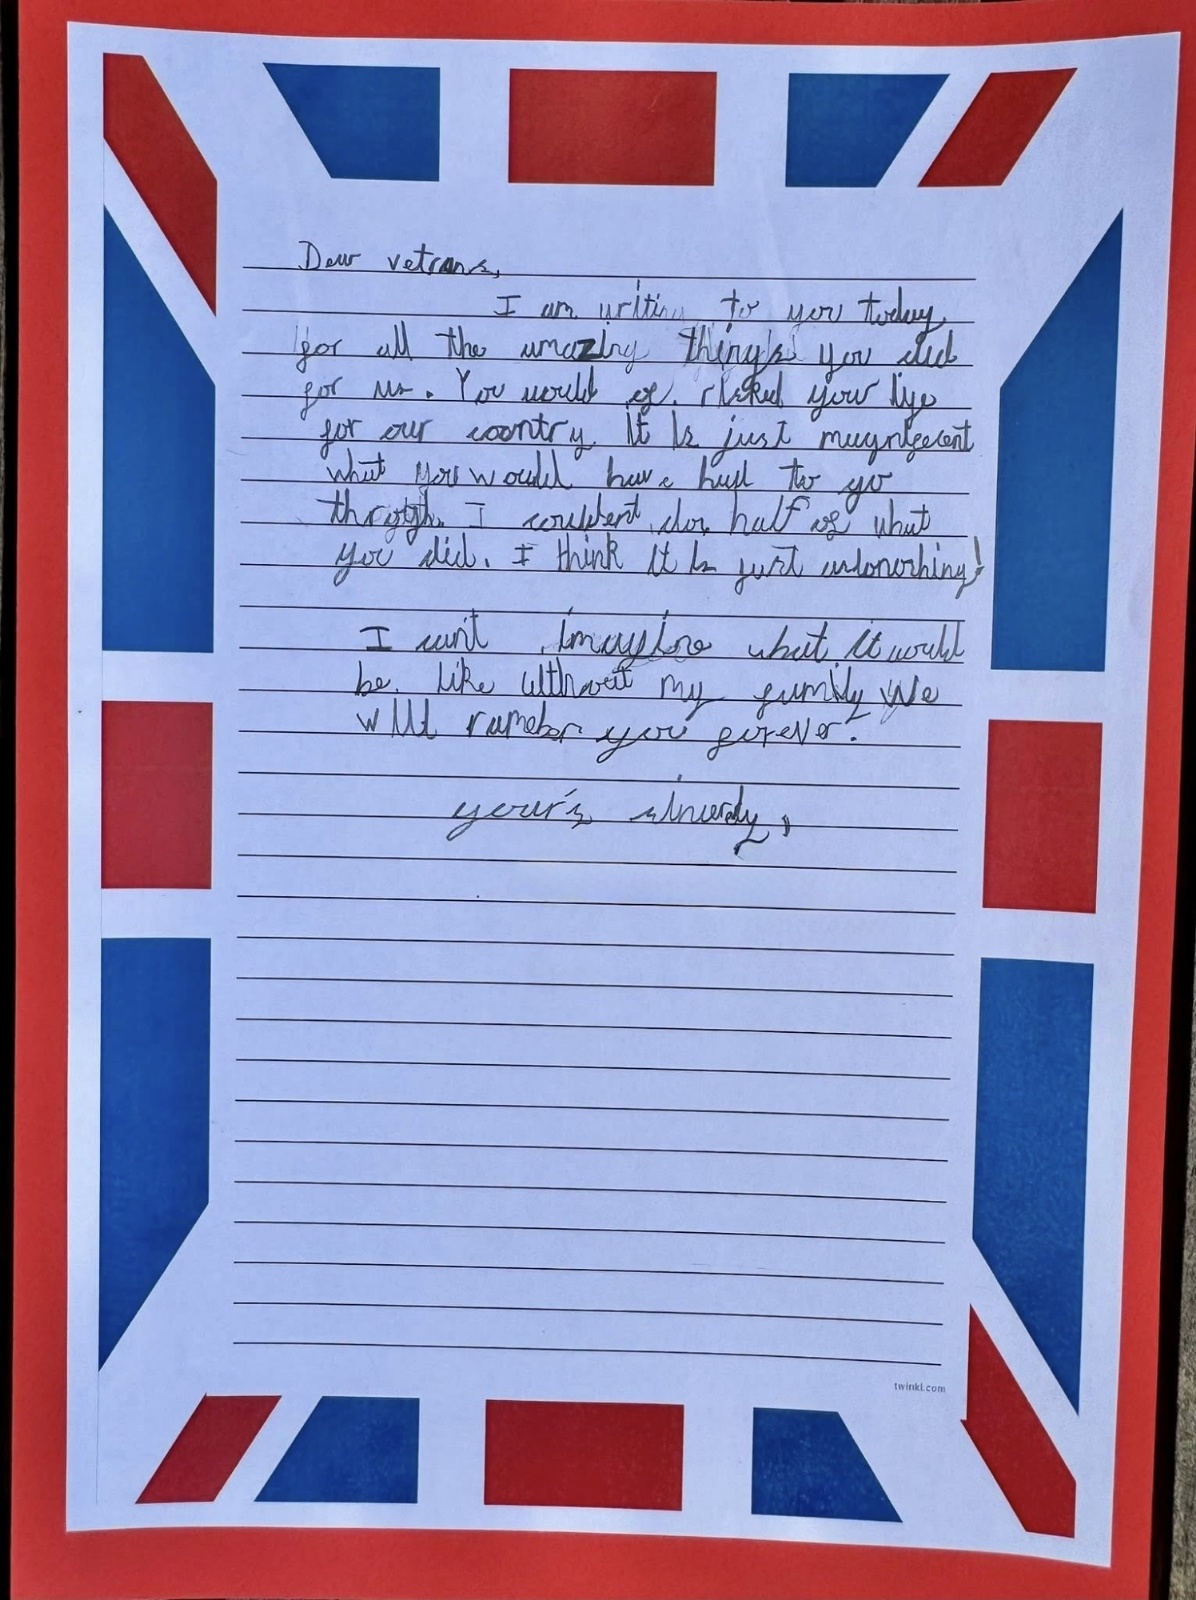 Dear vetrans,
I am writing to you today
for all the amazing things you did
for us. You would of risked your life
for our coontry. It is just magnificent
what you would have had to go
through. I couldent do half of what
you did. I think it is just astonorhing!
I can't imagine what it would
be like without my family We
will rumeber you forever.
your's sincerely,
twinkl.com